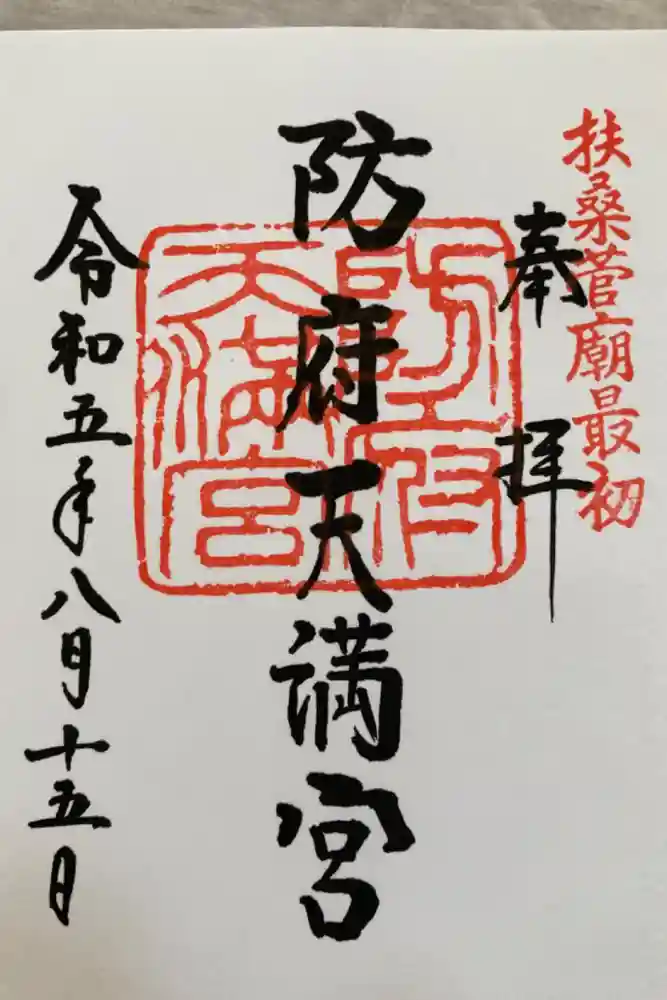 扶桑菅廟最初
奉拝
防府天満宮
防府
天満宮
令和五年八月十五日